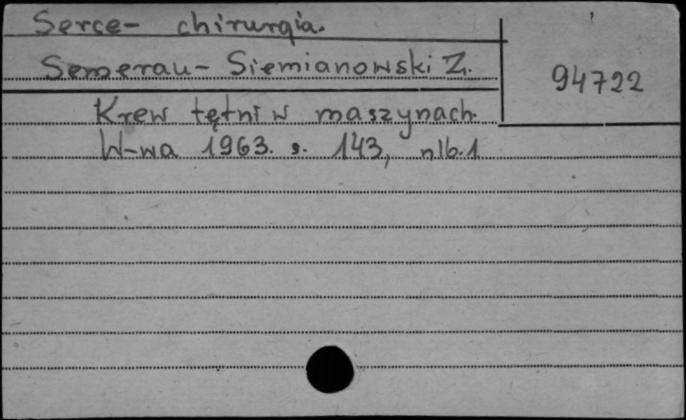 Serce- chirurgia.
Semerau- Siemianowski Z.
94722
Krew tętni w maszynach.
W-wa 1963. s. 143, nlb.1